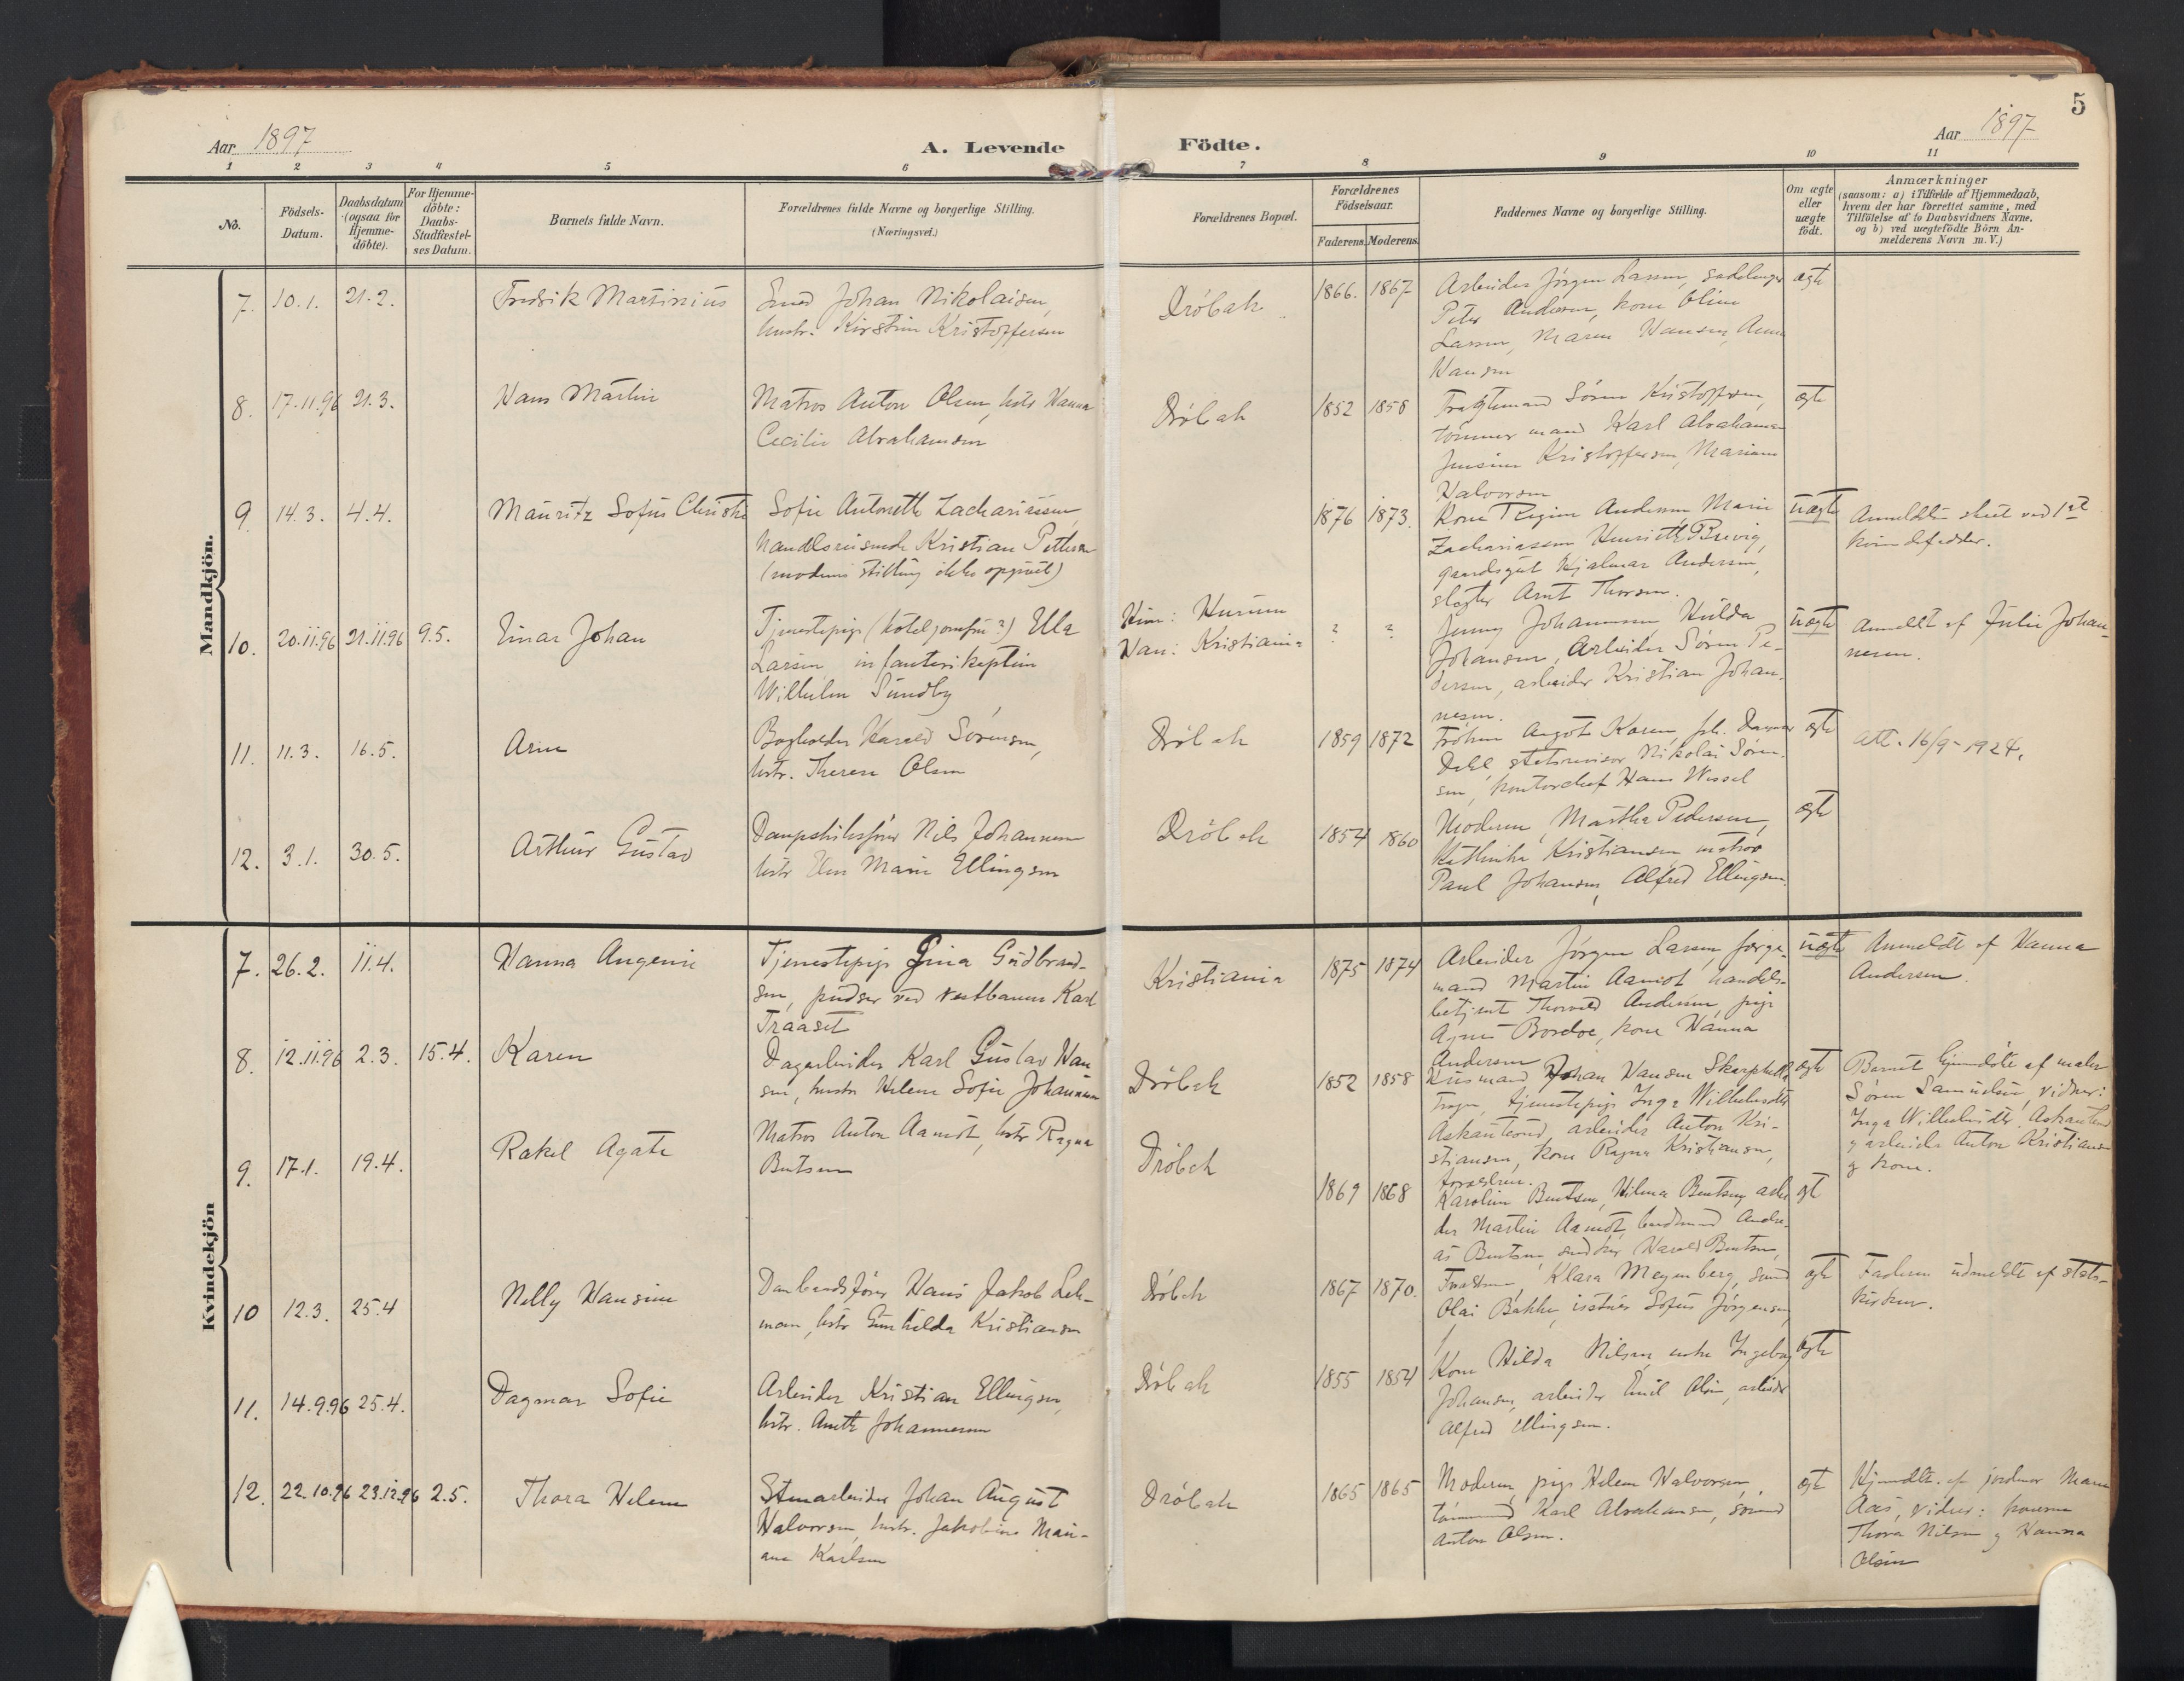 5
Aar 1897
A. Levende
Födte.
Aar 1897
1 2 3 4 5 6 7 8 9 10 11
No.
Födsels-
Datum.
Daabsdatum
(ogsaa for
Hjemme-
döbte).
For Hjemme-
döbte:
Daabs-
Stadfæstel-
ses Datum.
Barnets fulde Navn.
Forældrenes fulde Navne og borgerlige Stilling.
(Næringsvei.)
Forældrenes Bopæl.
Forældrenes
Födselsaar.
Faderens. Moderens.
Faddernes Navne og borgerlige Stilling.
Om ægte
eller
uægte
födt.
Anmærkninger
(saasom: a) i Tilfælde af Hjemmedaab,
hvem der har forrettet samme, med
Tilföielse af to Daabsvidners Navne,
og b) ved uægtefödte Börn An-
melderens Navn m. V.)
Mandkjön.
7. 10.1. 21.2.
Fredrik Martinius
Smed Johan Nikolaisen,
hustr. Kirstine Kristoffersen
Dröbak
1866. 1867
Arbeider Jörgen Larsen,
Peter Andersen, kone Oline
Larsen, Maren Hansen, Anna
Hansen
ægte
8. 17.11.96 21.3.
Hans Martin
Matros Anton Olsen, hstr Hanna
Cecilie Abrahamsen
Dröbak
1852 1858
Sören Kristoffersen,
tömmermand Karl Abrahamsen
Jensine Kristoffersen, Mariane
Halvorsen
ægte
9. 14.3. 4.4.
Mauritz Sofus Christi
Sofie Antonette Zachariassen,
handelsreisende Kristian Pettersen
(moderens stilling ikke opgivet)
1876 1873.
Kone Regine Andersen Marie
Zachariassen Henriette Brevig,
gaardsgut Hjalmar Andersen,
slagter Arnt Thorsen.
uægte
Anmeldelse skeet ved 1ste
kvindefadder.
10. 20.11.96 21.11.96 9.5.
Einar Johan
Tjenestepige (hoteljomfru?) Ella
Larsen, infanterikaptein
Wilhelm Sundby
Hun: Hurum
Han: Kristiania
? ?
Jenny Johannesen, Hulda
Johansen, Arbeider Sören Pe-
dersen, arbeider Kristian Johan-
nesen.
uægte
Anmeldt af Julie Johan-
nesen.
11. 11.3. 16.5.
Arne
Bogholder Harald Sörensen,
hstr. Therese Olsen
Dröbak
1859 1872
Fröken Augot Karen, frk. Dagmar
Dahl, statsrevisor Nikolai Sören-
sen, kontorchef Hans Wessel
ægte
Att. 16/9-1924.
12. 3.1. 30.5.
Arthur Gustav
Dampskibsförer Nils Johannesen
hstr Elen Marie Ellingsen
Dröbak
1854 1860
Moderen, Martha Pedersen,
Kathinka Kristiansen, matros
Paul Johansen, Alfred Ellingsen.
ægte
Kvindekjön
7. 26.2. 11.4.
Hanna Augenie
Tjenestepige Gina Gudbrand-
sen, pudser ved vestbanen Karl
Traaset
Kristiania
1875 1874
Arbeider Jörgen Larsen, færge-
mand Martin Aamot, handels-
betjent Thorvald Andersen, pige
Agnes Bordoe, kone Hanna
Andersen
uægte
Anmeldt af Hanna
Andersen.
8. 12.11.96 2.3. 15.4.
Karen
Dagarbeider Karl Gustav Han-
sen, hustr Helene Sofie Johannesen
Dröbak
1852 1858
Husmand Johan Hansen
tjenestepige Inga Wilhelmsdtr
Askautrud, arbeider Anton Kri-
stiansen, kone Ragna Kristiansen,
forældrene.
ægte
Barnet hjemdöbt af maler
Sören Samuelsen, vidner:
Inga Wilhelmsdtr. Askautrud
og arbeider Anton Kristiansen
og kone.
9. 17.1. 19.4.
Rakel Agate
Matros Anton Aamot, hstr Ragna
Berntsen
Dröbak
1869 1868
Karoline Berntsen, Hilma Berntsen, arbei
der Martin Aamot, Andre-
as Berntsen, Harald Berntsen,
ægte
10 12.3. 25.4
Nelly Hansine
Hans Jakob Leh-
man, hstr Gunhilda Kristiansen
Dröbak
1867 1870.
Forældrene, Klara Meyenberg, smed
Olai Bakke, Sofus Jörgensen,
ægte
Faderen udmeldt af stats-
kirken.
11. 14.9.96 25.4.
Dagmar Sofie
Arbeider Kristian Ellingsen,
hstr. Anette Johannesen
Dröbak
1855 1854
Kone Hilda Nilsen, enke Ingeborg
Johansen, arbeider Emil Olsen, arbeider
Alfred Ellingsen.
ægte
12. 22.10.96 23.12.96 2.5.
Thora Helene
Stenarbeider Johan August
Halvorsen, hustr. Jakobine Mari-
ane Karlsen
Dröbak
1865 1865
Moderen, pige Helene Halvorsen,
tömmermd Karl Abrahamsen, sömd
Anton Olsen.
ægte
Hjemdöbt af jordmor Maren
Aas, vidner: konerne
Thora Nilsen og Hanna
Olsen